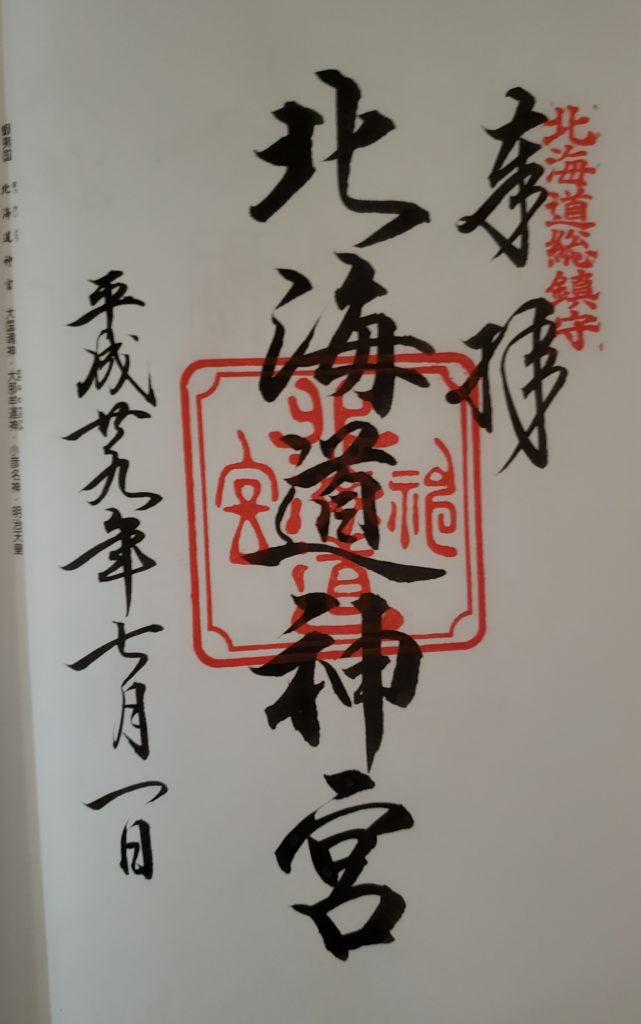 北海道総鎮守
奉拝
北海道神宮
平成廿九年七月一日
蝦夷国 北海道神宮 大国魂神・大那牟遅神・小彦名神・明治天皇